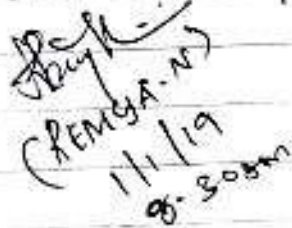 (REMYA-N)
1/1/19
8.30am